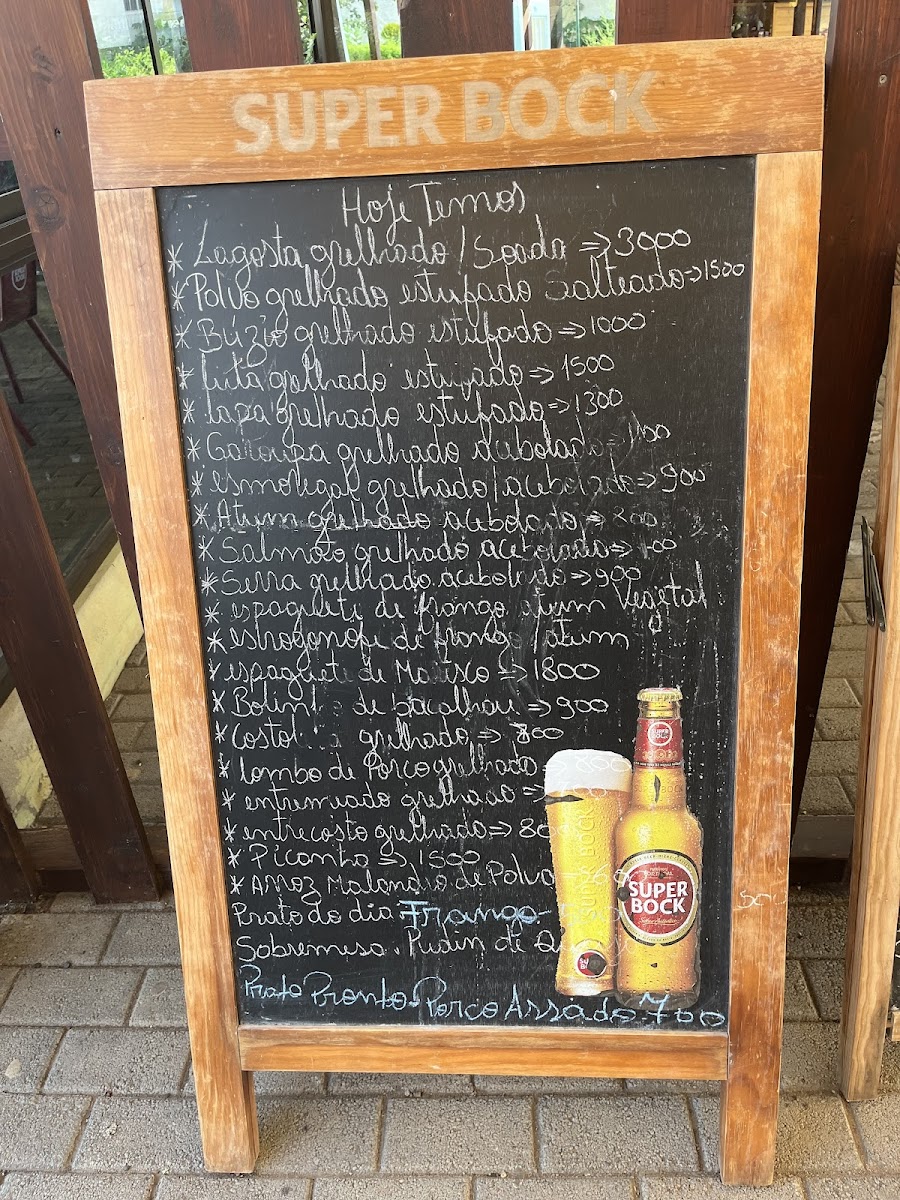 SUPER BOCK
Hoje Temos
* Lagosta grelhado / Soada => 3000
* Polvo grelhado estufado Salteado => 1500
* Búzio grelhado estufado => 1000
* grelhado estufado => 1500
* lapa grelhado estufado => 1300
* Garoupa grelhado acebolado =>
* esmoregal grelhado / acebolado => 900
* Atum grelhado acebolado => 800
* Salmão grelhado acebolado =>
* Serra grelhado acebolado => 900
* espaguete de frango atum Vegetal
* estrogonofe de frango / atum
* espaguete de Marisco => 1800
* de bacalhau => 900
* grelhado => 800
* lombo de Porco grelhado
* entremeado grelhado =>
* entrecosto grelhado => 800
* Picanha => 1500
* Arroz Malandro de Polvo
Prato do dia Frango
Sobremesa. Pudin de
Prato Pronto - Porco Assado 700
SUPER BOCK
SUPER BOCK
SUPER BOCK